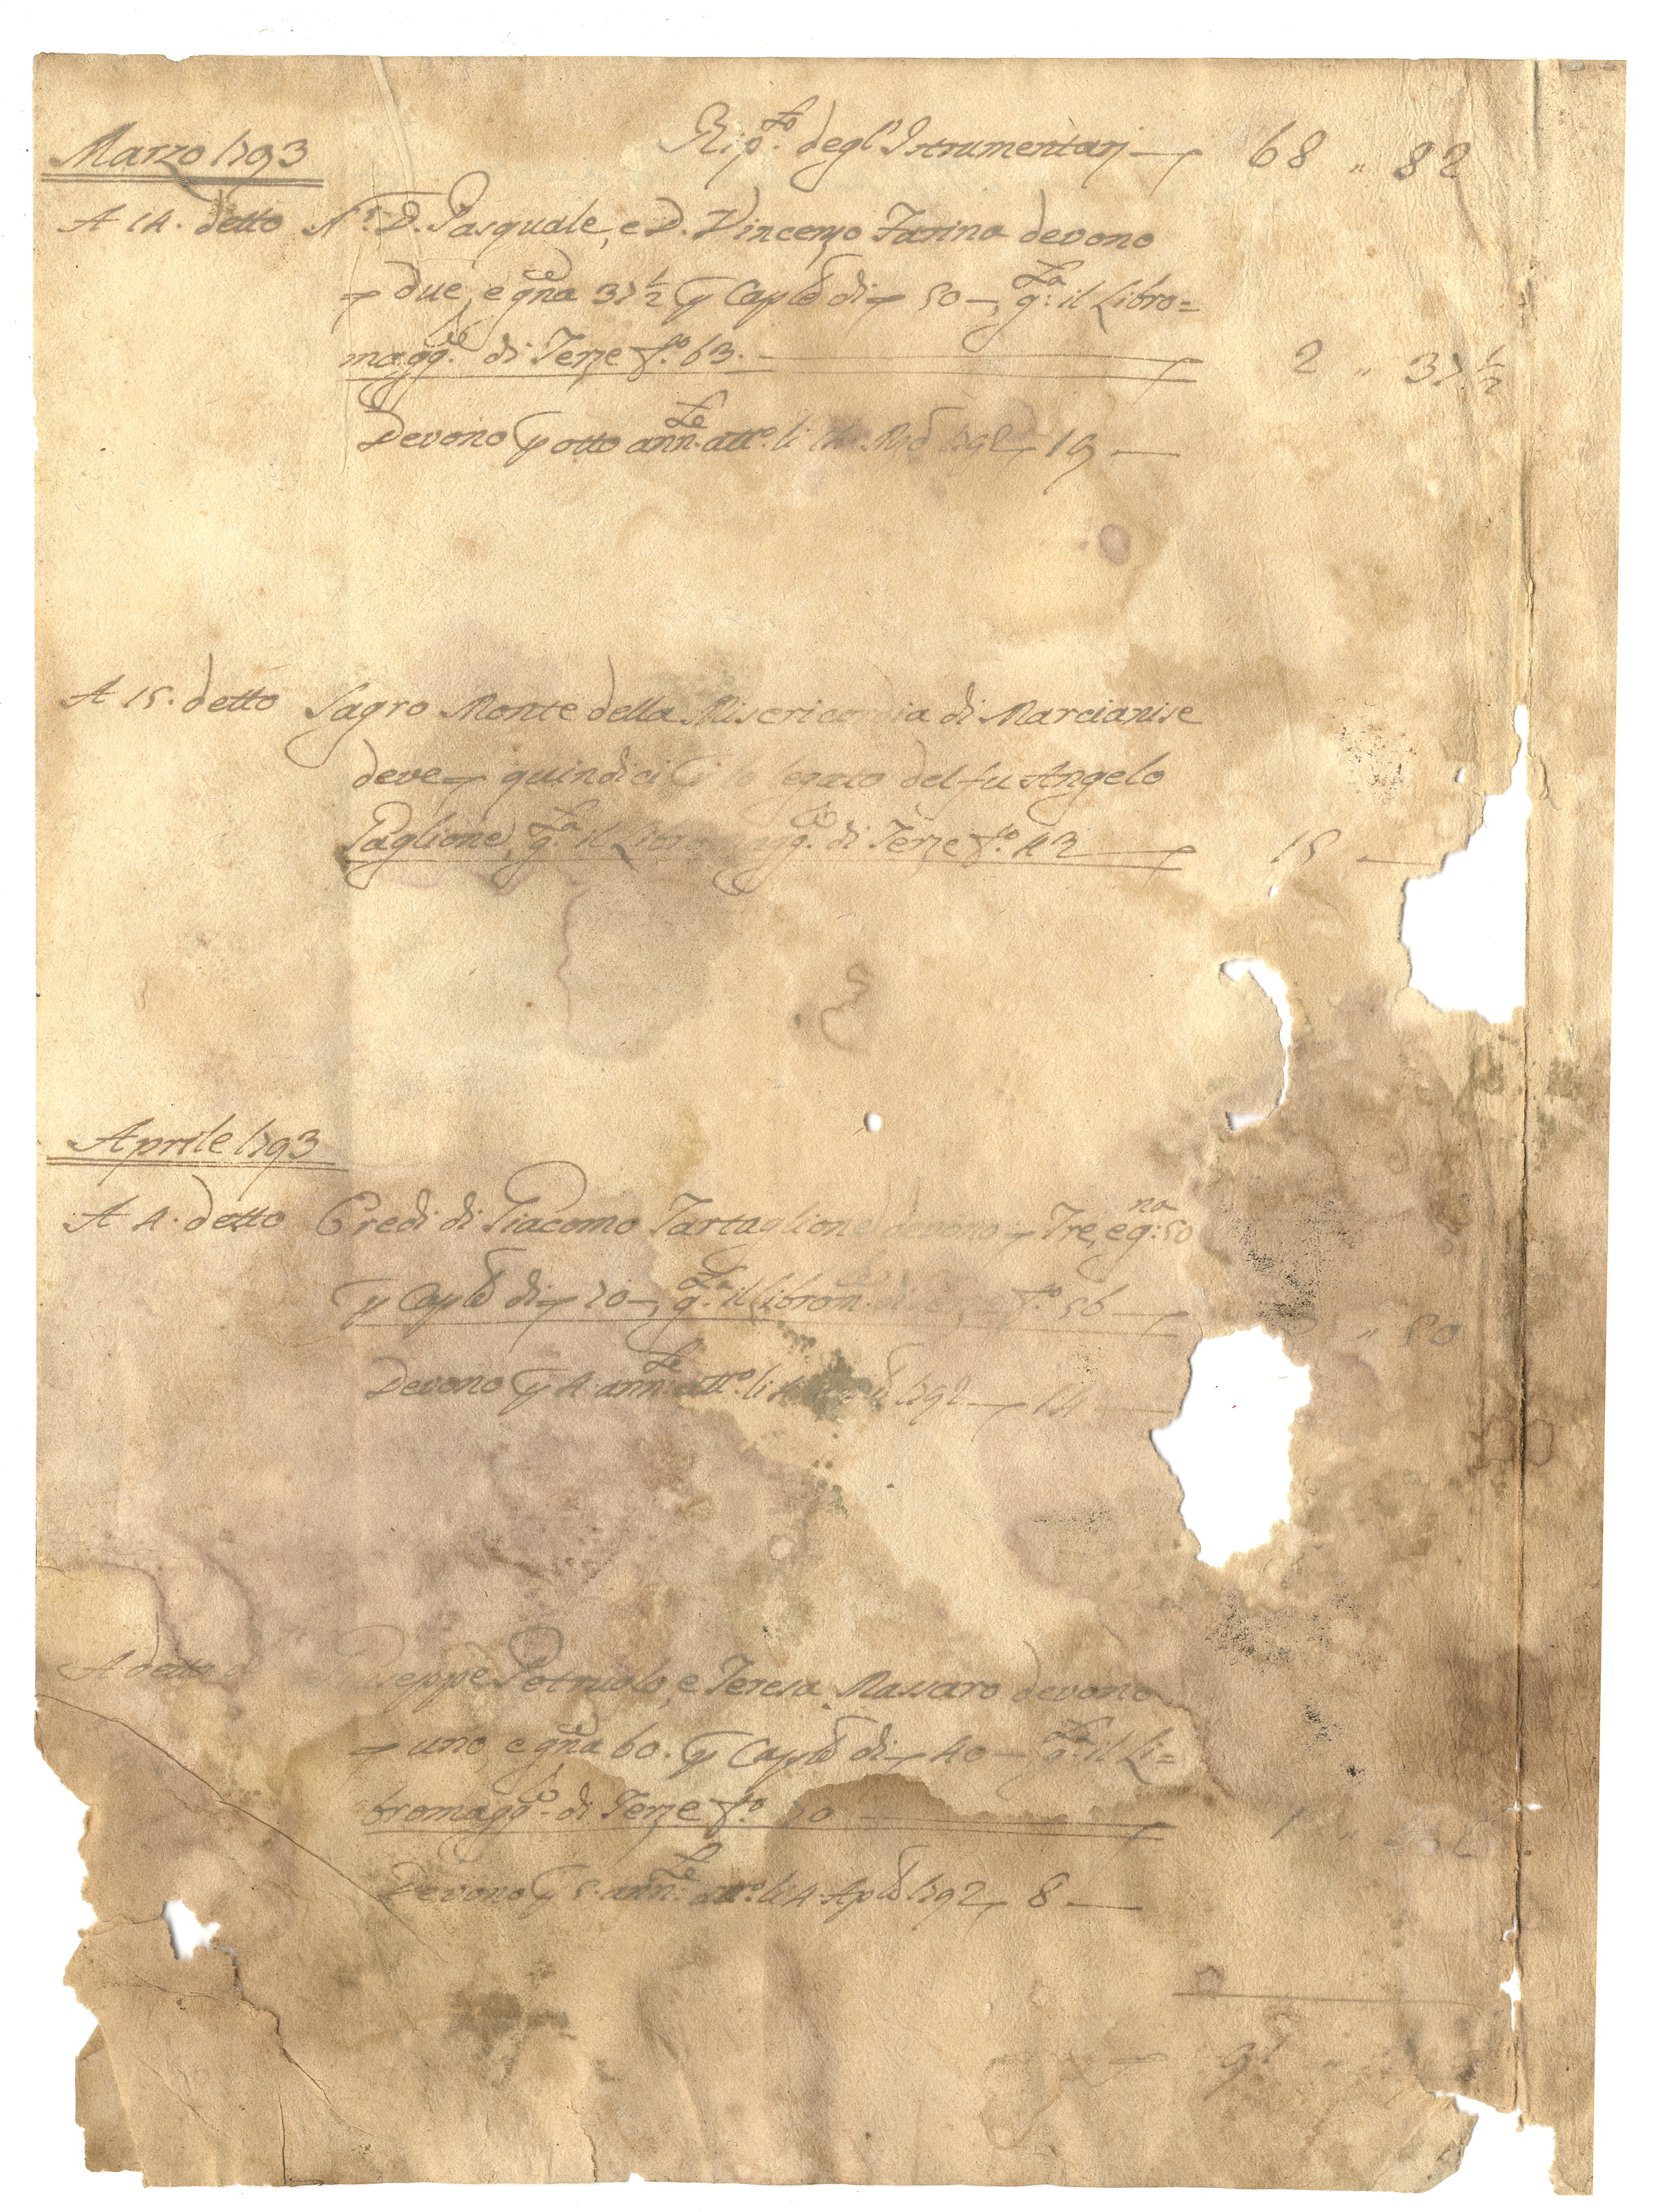 Rip.to degl'Istrumentarj — 68 " 82
Marzo 1793
A 14. detto Sr. D. Pasquale, e D. Vincenzo Farina devono
due, e gna 37½ p Caple di 50 —, q.ta il Libro=
magg.re di Terze f.o 63. — 2 " 37½
Devono p otto ann.te att.e li 14 792 19 —
A 15. detto Sagro Monte della Misericordia di Marcianise
deve quindici legato del fu Angelo
Paglione, q.ta il Libro magg.re di Terze f.o 43 — 15 —
Aprile 1793
A 4. detto Eredi di Giacomo Tartaglione devono Tre, e g:na 50
p Caple di 70 —, q.ta il Librom f.o 56 — " 50
Devono p 4 ann.te att.e li 4 792 — 14 —
A detto Giuseppe Petruolo, e Teresa Massaro devono
uno, e gna 60. p Caple di 40 — q.ta il Li=
bromagg.re di Terze f.o — 1 "
Devono p 5. ann.te att.e li 4 Aple 1792 8 —